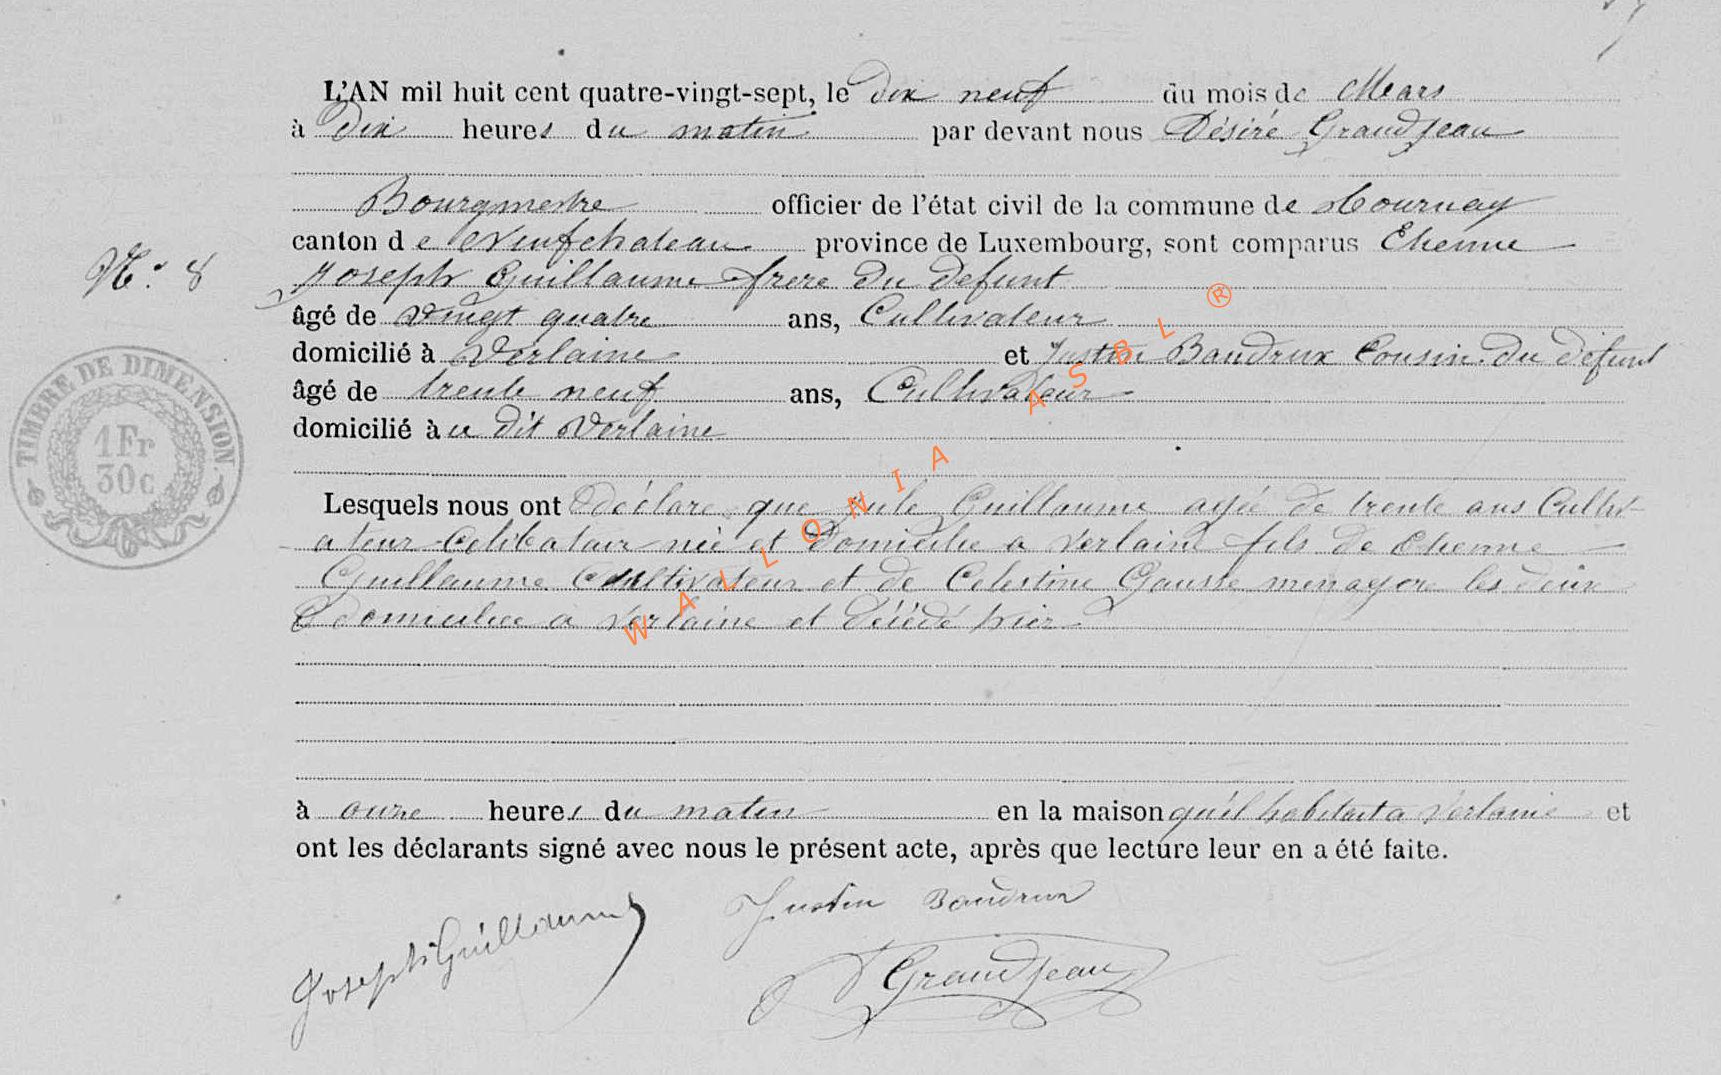 L'AN mil huit cent quatre-vingt-sept, le dix neuf du mois de Mars
à dix heures du matin par devant nous Désiré Grandjean
Bourgmestre officier de l'état civil de la commune de Tournay
canton de Neufchateau province de Luxembourg, sont comparus Etienne
N.° 8
Joseph Guillaume frere du defunt
âgé de vingt quatre ans, Cultivateur
domicilié à Verlaine et Justin Baudrux Cousin du défunt
âgé de trente neuf ans, Cultivateur
domicilié au dit Verlaine
TIMBRE DE DIMENSION.
1 Fr
30 c
Lesquels nous ont déclaré que Jule Guillaume agée de trente ans Cultiv
ateur Celibatair née et domicilie a Verlaine fils de Etienne
Guillaume Cultivateur et de Celestine Gausse menagere les deux
domiciliee a Verlaine et décédé hier
à onze heures du matin en la maison qu'il habitait a Verlaine et
ont les déclarants signé avec nous le présent acte, après que lecture leur en a été faite.
Justin Baudrux
Joseph Guillaume
D Grandjean
WALLONIA ASBL ®